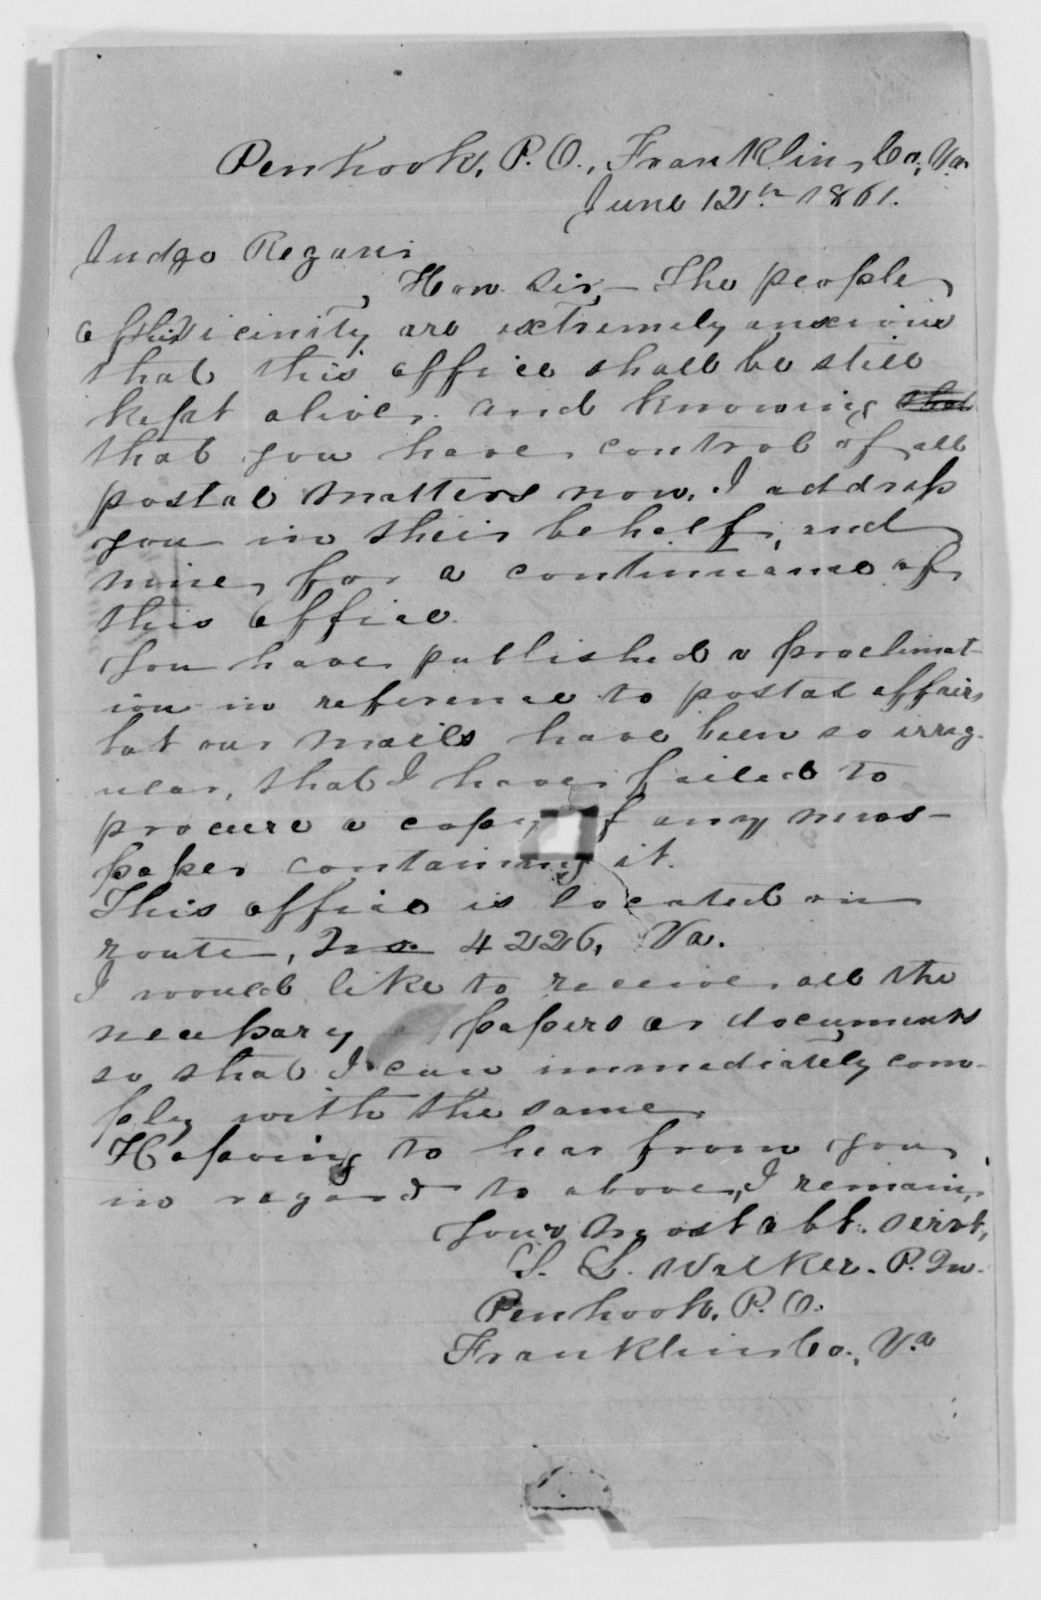 Penhook, P. O., Franklin, Co, Va.
June 12th 1861.
Judge Regan
Hon. Sir, — The people
of this vicinity are extremely anxious
that this office shall be still
kept alive. and knowing that
that you have control of all
postal matters now, I address
you in their behalf, and
mine, for a continuance of
this office.
You have published a proclimat-
ion in reference to postal affairs,
but our mails have been so irreg-
ular, that I have failed to
procure a copy of any news-
paper containing it.
This office is located on
route, No 4226, Va.
I would like to receive all the
necessary papers or documents
so that I can immediately com-
ply with the same.
Hopeing to hear from you
in regard to above, I remain,
Your most obt. servt,
S. L. Walker. P. M.
Penhook, P. O.
Franklin, Co., Va